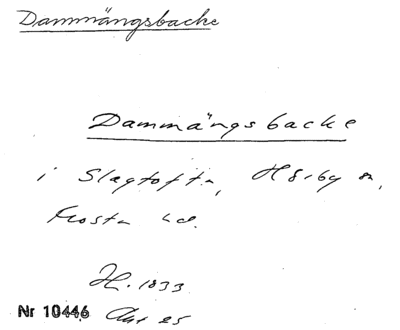 Dammängsbacke
Dammängsbacke
i Slagtofta, Hörby sn,
Frosta hd.
H. 1833
Nr 10446 Akt 25